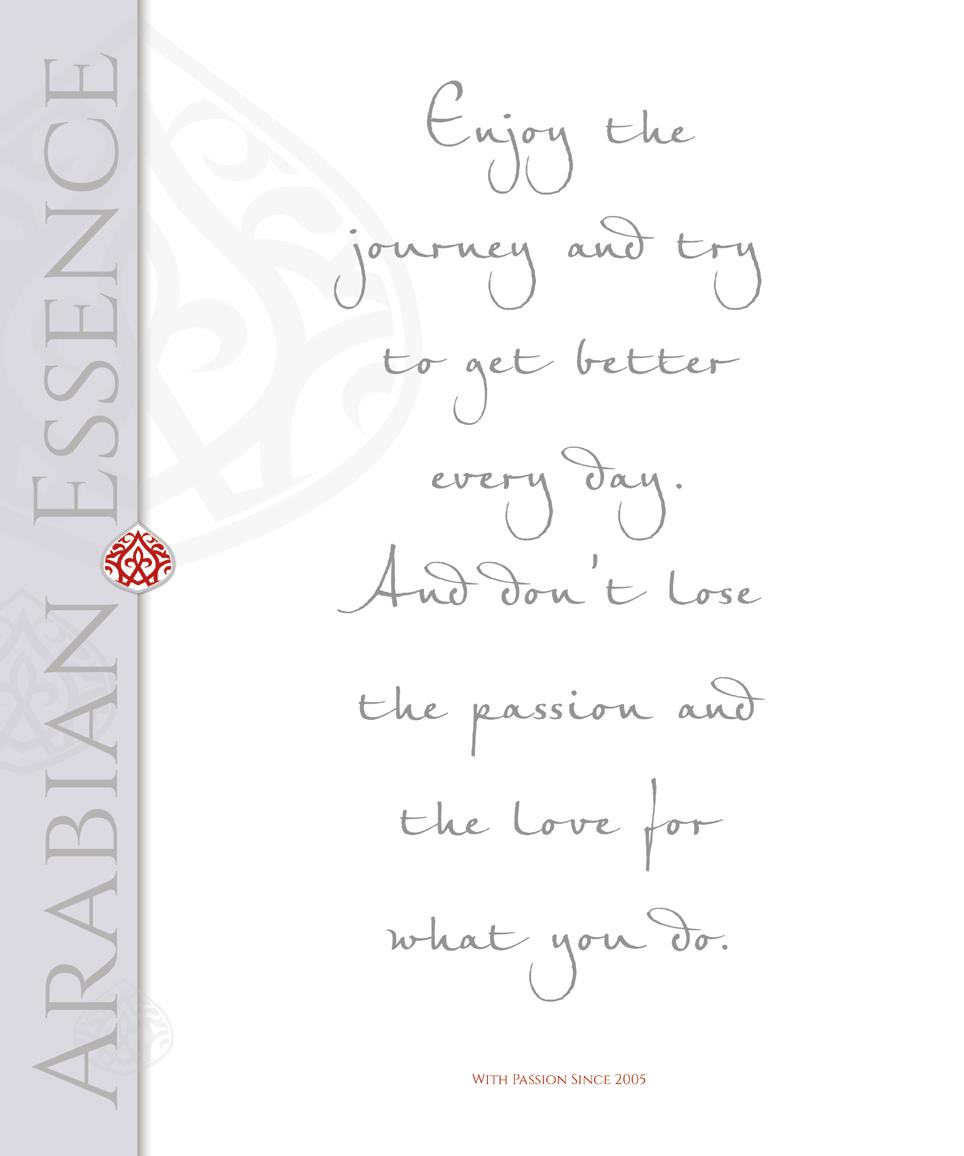 ARABIAN ESSENCE
Enjoy the
journey and try
to get better
every day.
And don't lose
the passion and
the love for
what you do.
WITH PASSION SINCE 2005